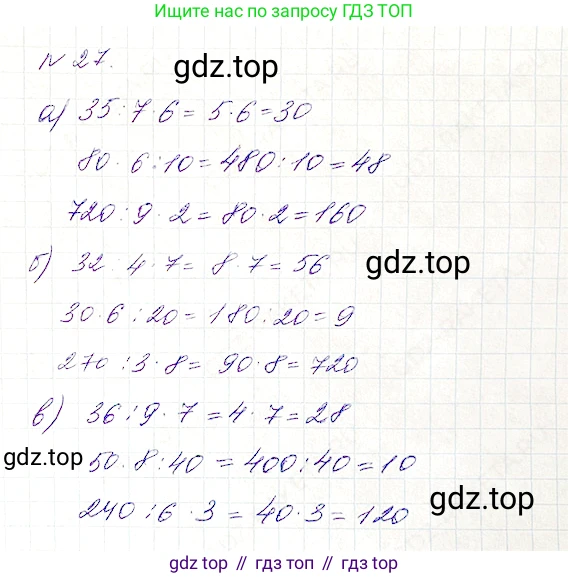 Ищите нас по запросу ГДЗ ТОП
№ 27.
gdz.top
а) 35 : 7 · 6 = 5 · 6 = 30
80 · 6 : 10 = 480 : 10 = 48
720 : 9 · 2 = 80 · 2 = 160
б) 32 : 4 · 7 = 8 · 7 = 56
gdz.top
30 · 6 : 20 = 180 : 20 = 9
270 : 3 · 8 = 90 · 8 = 720
в) 36 : 9 · 7 = 4 · 7 = 28
gdz.top
50 · 8 : 40 = 400 : 40 = 10
gdz.top
240 : 6 · 3 = 40 · 3 = 120
gdz.top // гдз топ // гдз.top